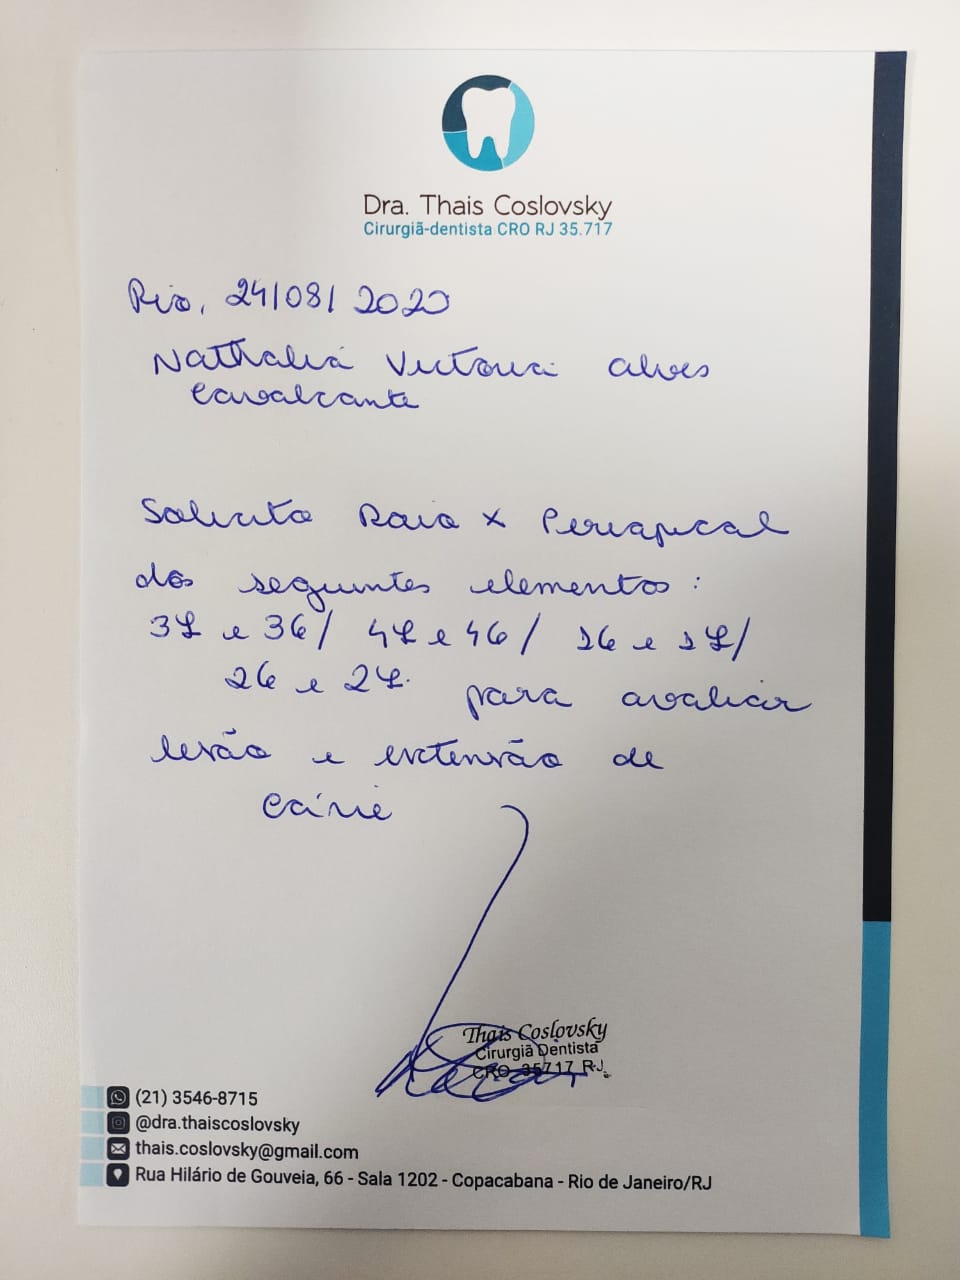 Dra. Thais Coslovsky
Cirurgiã-dentista CRO RJ 35.717
Rio, 24/08/2020
Nathalia Victoria Alves
Cavalcante
Solicito Raio x Periapical
dos seguintes elementos:
37 e 36/ 47 e 46/ 16 e 17/
26 e 27. para avaliar
lesão e extensão de
cárie
Thais Coslovsky
Cirurgiã Dentista
CRO 35717 RJ
(21) 3546-8715
@dra.thaiscoslovsky
thais.coslovsky@gmail.com
Rua Hilário de Gouveia, 66 - Sala 1202 - Copacabana - Rio de Janeiro/RJ